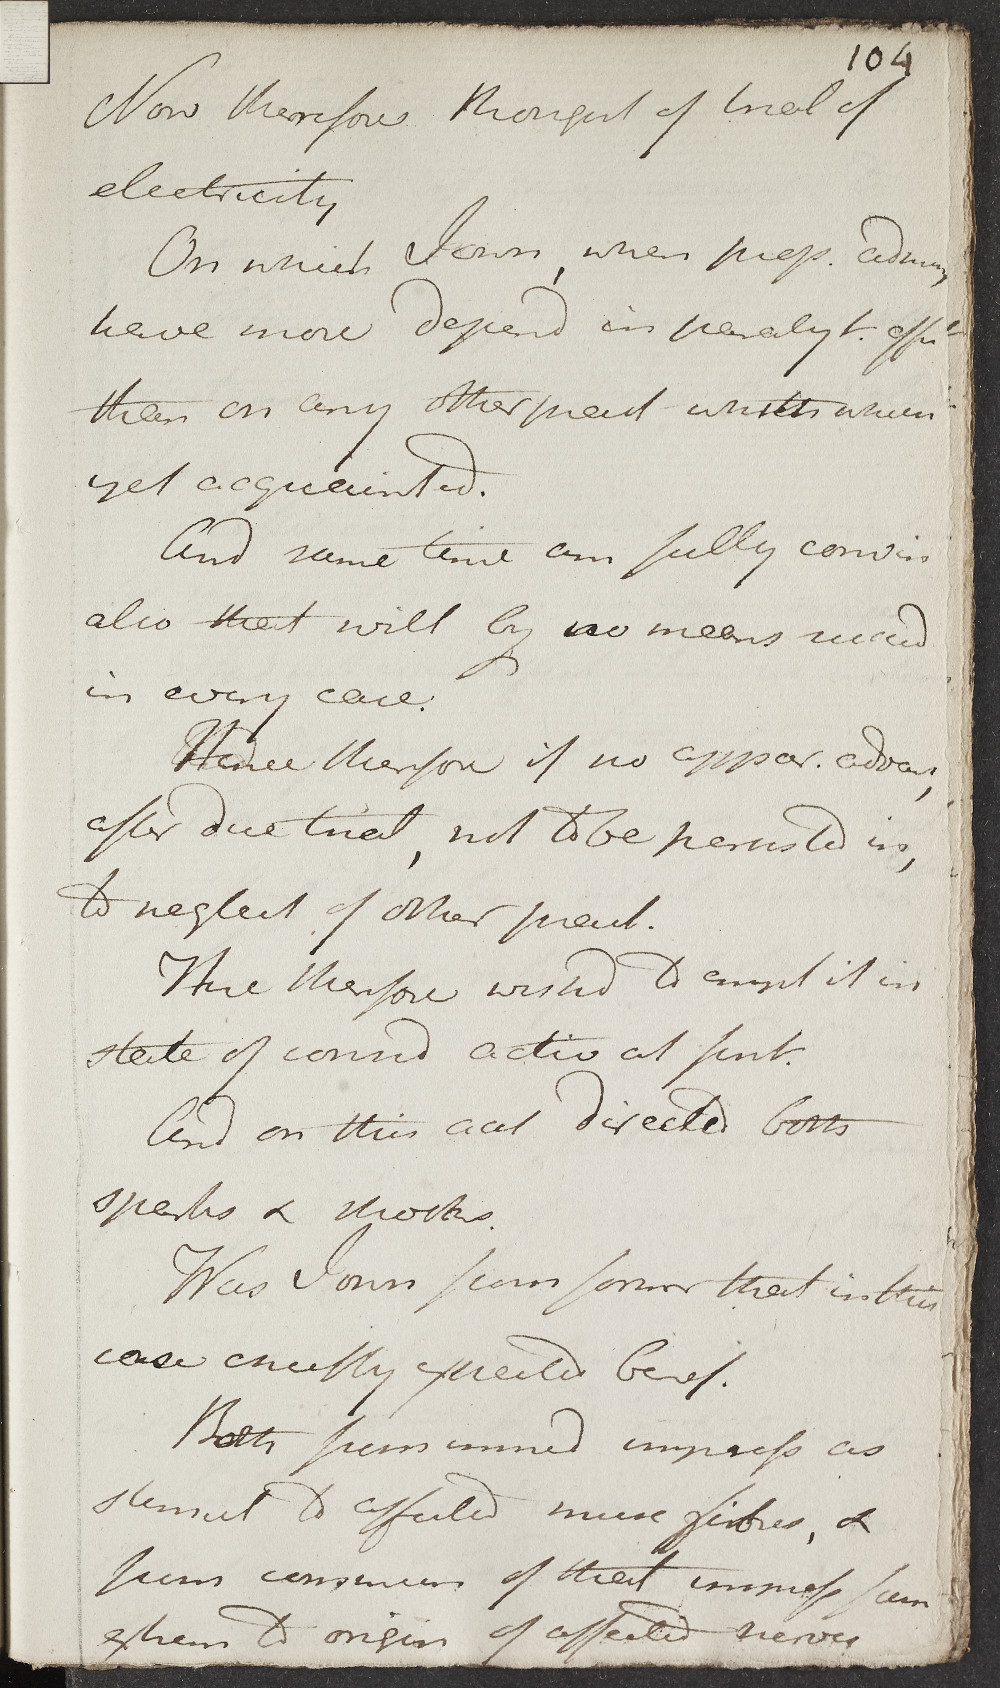 104
Now therefore thought of trial of
electricity
On which I own, when prop. admin
have more depend in paralyt. aff
than on any other pract with whici
yet acquainted.
And same time am fully convin
also that will by no means succed
in every case.
Hence therefore if no appar. advant,
after due trial, not to be persisted in,
to neglect of other pract.
Here therefore wished to empl it in
state of consid activ at first.
And on this acct directed both
sparks & shocks.
Was I own from former that in this
case chiefly expected benef.
Both from immed impress as
stimul to affected musc fibres, &
from of that impress from
extrem to origin of affected nerves